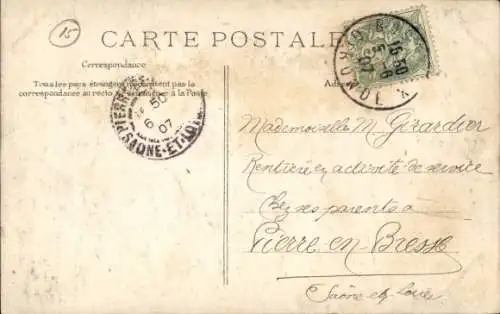 15
CARTE POSTALE
Correspondance
Tous les pays étrangers n'acceptent pas la
correspondance au recto
Adre
15 50
5 6
07
JURA
PIERRE
50
6
07
SAONE-ET-LOIRE
Mademoiselle M. Girardier
Rentière en activité de service
Chez ses parents à
Pierre en Bresse
Saône et Loire